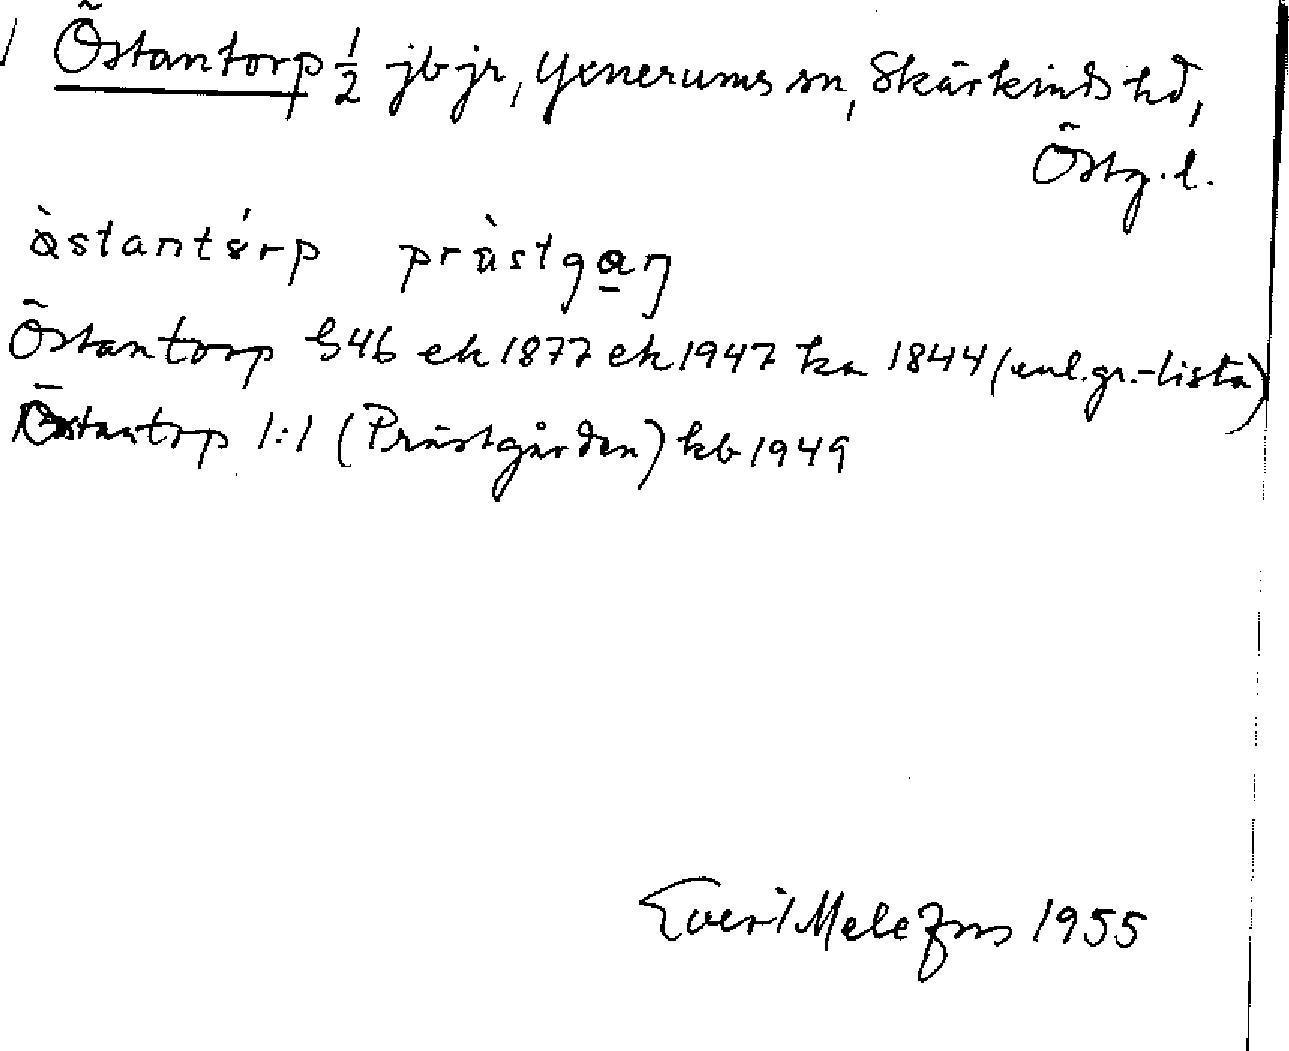 Östantorp 1/2 jb jr, Yxnerums sn, Skärkinds hd,
Östg. l.
prästgaŋ
Östantorp S46 ek 1877 ek 1947 ka 1844 (enl. gr.-lista)
Östantorp 1:1 (Prästgården) kb 1949
1955